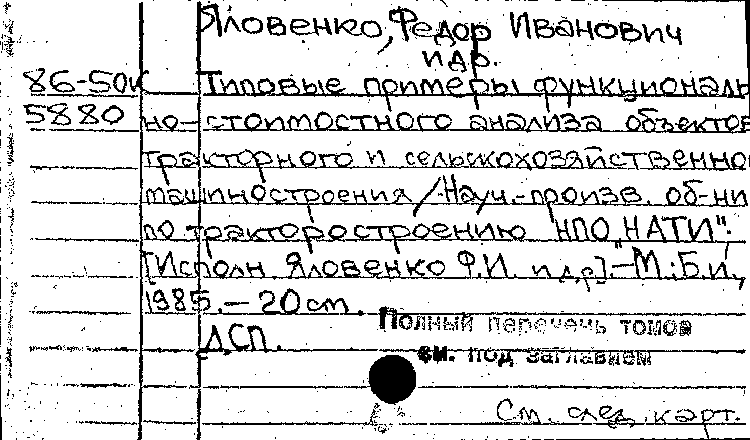 Яловенко, Федор Иванович
и др.
86-50к Типовые примеры функциональ
5880 но-стоимостного анализа объектов
тракторного и сельскохозяйственно
машиностроения / Науч.-произв. об-ни
по тракторостроению НПО "НАТИ".
[Исполн. Яловенко Ф.И. и др.].-М.: Б.и.,
1985.-20 см.
ДСП.
Полный перечень томов
см. под заглавием
См. след. карт.